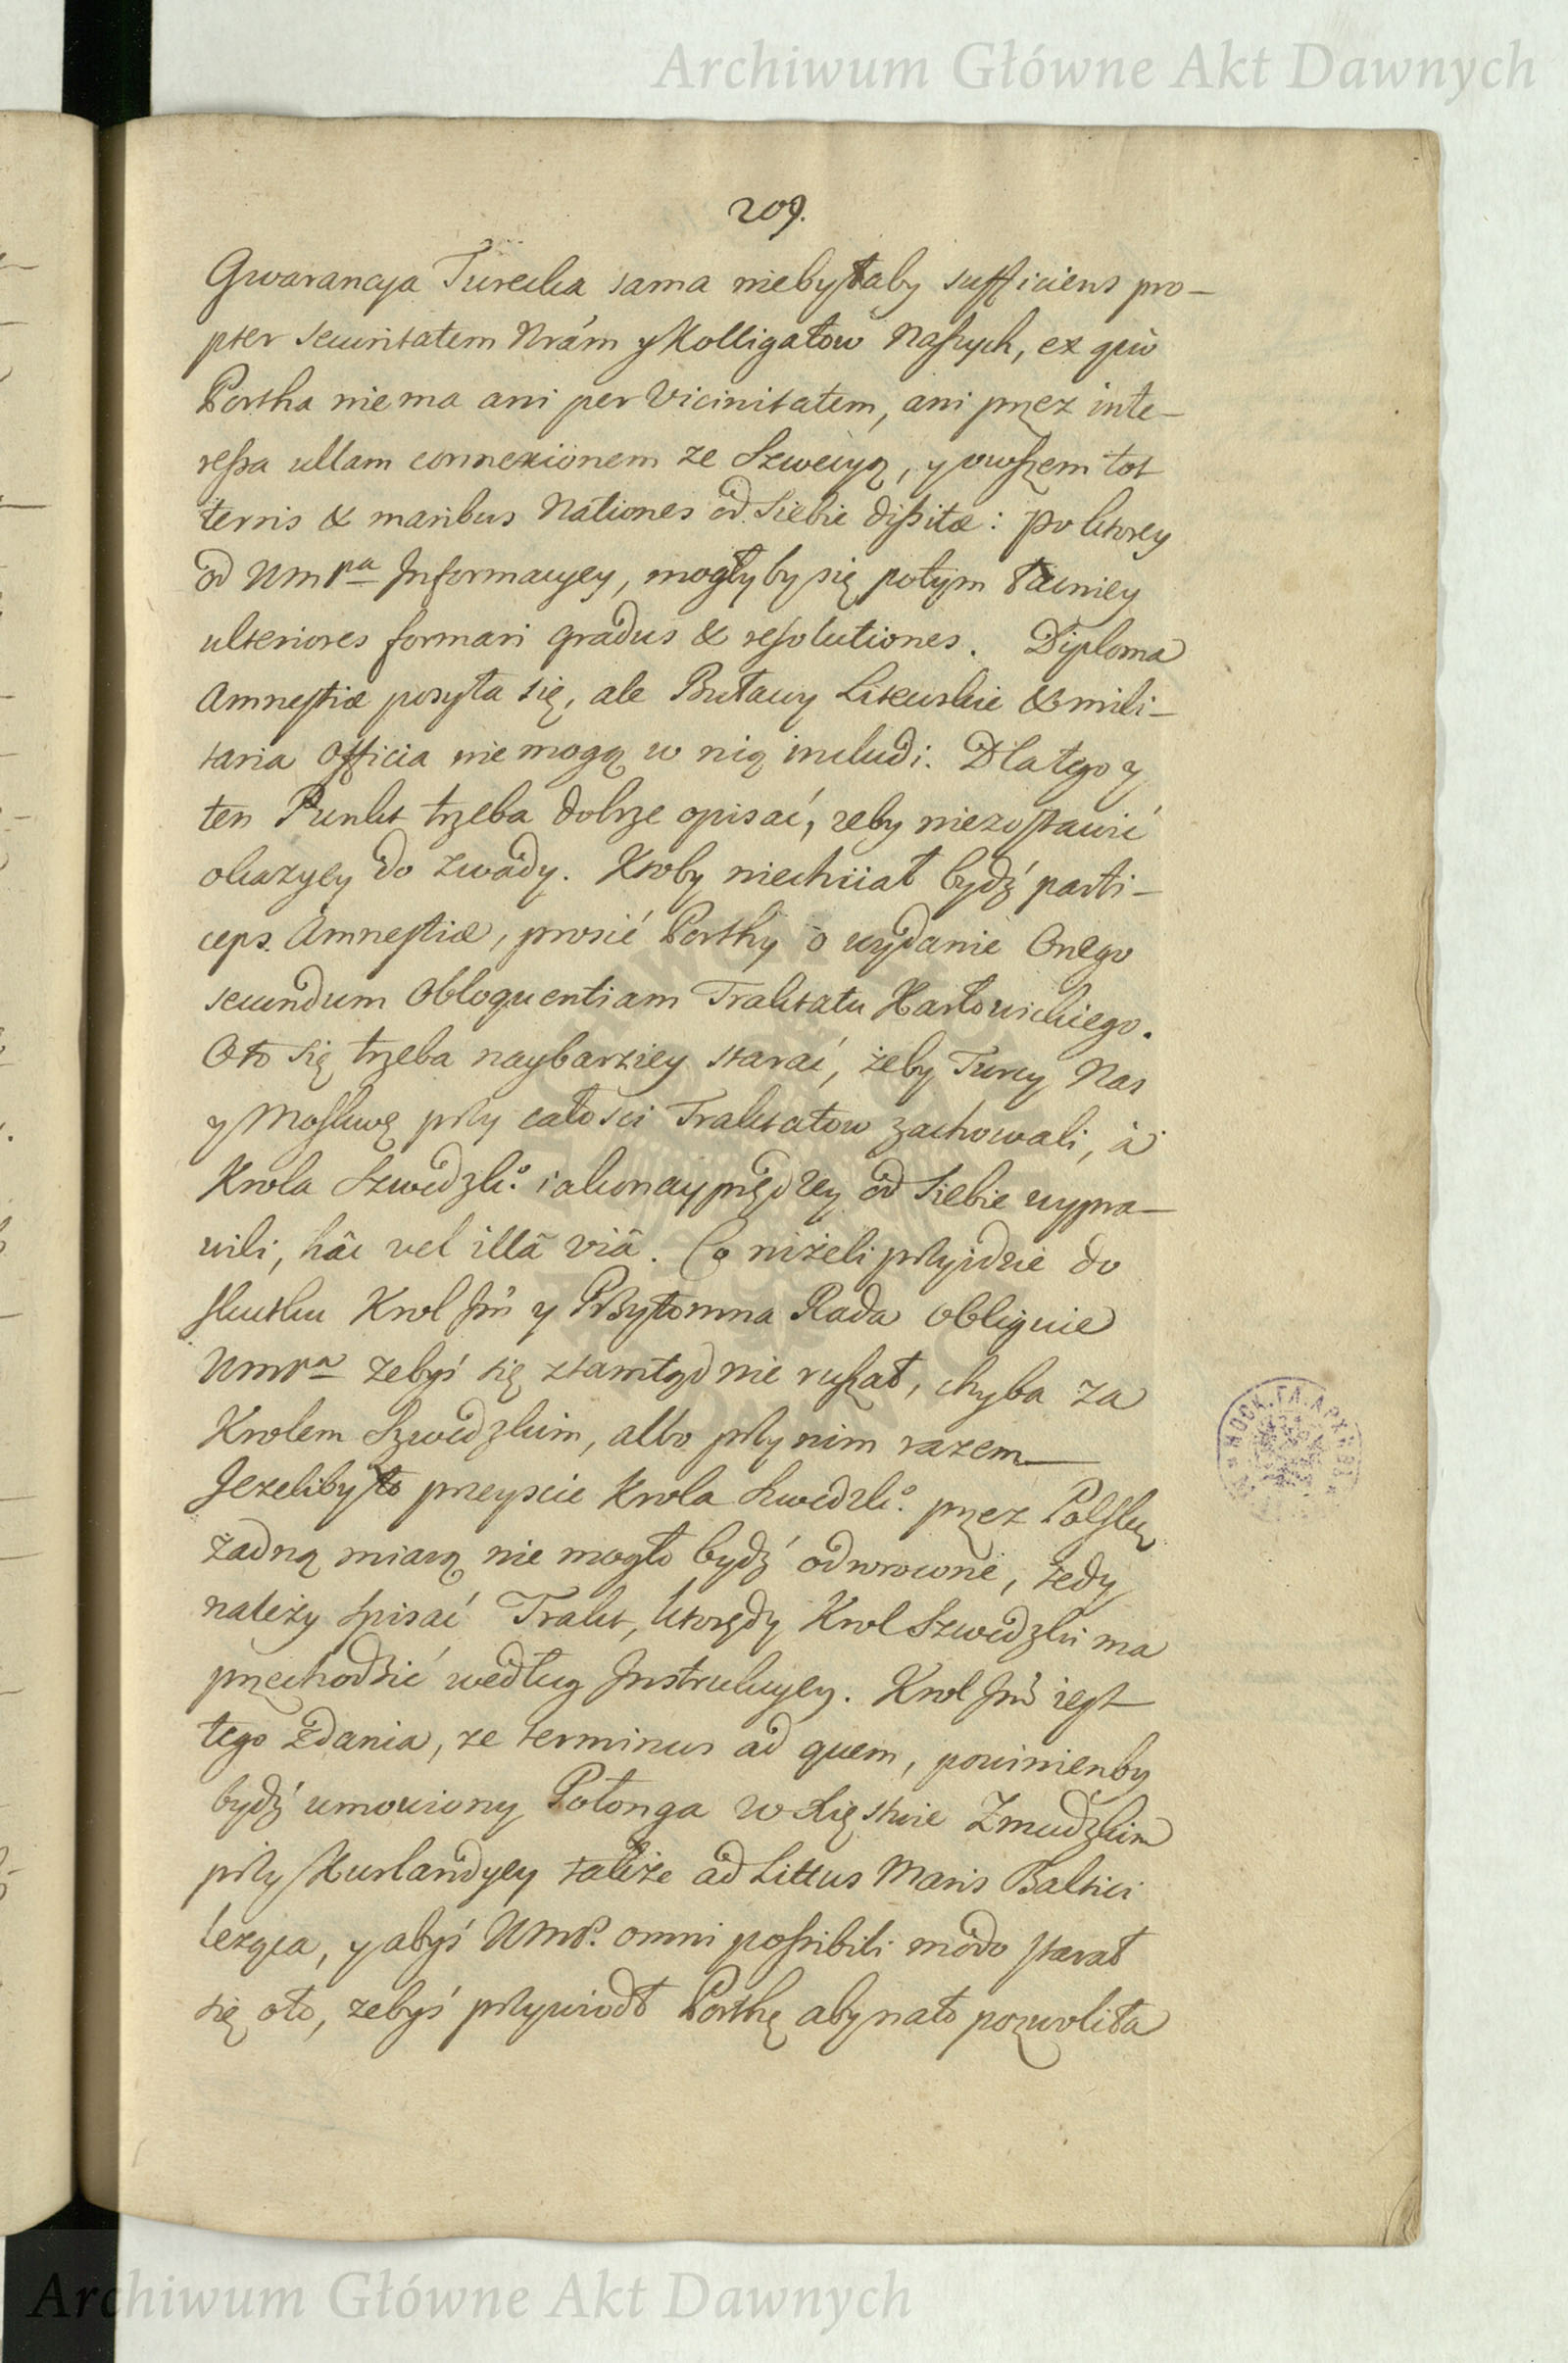 Archiwum Główne Akt Dawnych
209.
Gwarancya Turecka sama niebyłaby sufficiens pro-
pter securitatem Nrám y Kolligatow Naszych, ex quo
Portha niema ani per Vicinitatem, ani przez inte-
ressa ullam connexionem ze Szwecyą, y owszem tot
terris & maribus Nationes od siebie dissitæ: po ktorey
od Wmpa Informacyey, mogłyby się potym łacniey
ulteriores formari gradus & resolutiones. Diploma
Amnestiæ posyła się, ale Buławy Litewskie & mili-
taria Officia nie mogą w nią includi. Dlatego y
ten Punkt trzeba dobrze opisać, zeby niezostawić
okazyey do zwady. Ktoby niechciał bydź parti-
ceps Amnestiæ, prosić Porthy o wydanie Onego
secundum Obloquentiam Traktatu Karłowickiego.
Oto się trzeba naybarziey starać, żeby Turcy Nas
y Moskwę przy całości Traktatow zachowali, à
Krola Szwedzko iakonayprędzey od siebie wypra-
wili, hâc vel illâ viâ. Co niżeli przyidzie do
skutku Krol Jm y Przytomna Rada obliguie
Wmpa żebyś się ztamtąd nie ruszał, chyba za
Krolem Szwedzkim, albo przy nim razem
Jezeliby to przeyscie Krola Szwedzko przez Polskę
żadną miarą nie mogło bydź odwrocone, tedy
należy spisać Trakt, ktorędy Krol Szwedzki ma
przechodzić według Instrukcyey. Krol Jm iest
tego zdania, ze terminus ad quem, powinienby
bydź umowiony Połonga w Xięstwie Zmudzkim
przy Kurlandyey także ad Littus Maris Baltici
leząca, y abyś Wmp. omni possibili modo starał
się oto, zebyś przywiodł Porthę aby nato pozwoliła
Archiwum Główne Akt Dawnych